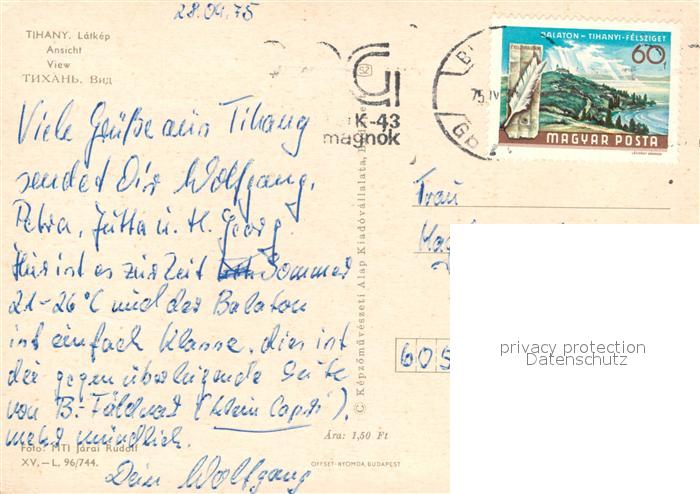 28.04.75
TIHANY. Látkép
Ansicht
View
ТИХАНЬ. Вид
Viele Grüße aus Tihany
sendet Dir Wolfgang,
Petra, Jutta u. H. Georg.
Hier ist es zur Zeit Sommer
21-26°C und der Balaton
ist einfach Klasse. dies ist
die gegenüberliegende Seite
von B.-Földvar (klein Capri).
mehr mündlich.
Dein Wolfgang
Foto: MTI Járai Rudolf
XV.—L, 96/744.
© Képzőművészeti Alap Kiadóvállalata,
Ára: 1,50 Ft
OFFSET-NYOMDA, BUDAPEST
K-43
magnók
75. IV
BALATON - TIHANYI-FÉLSZIGET
60f
MAGYAR POSTA
Frau
605
privacy protection
Datenschutz